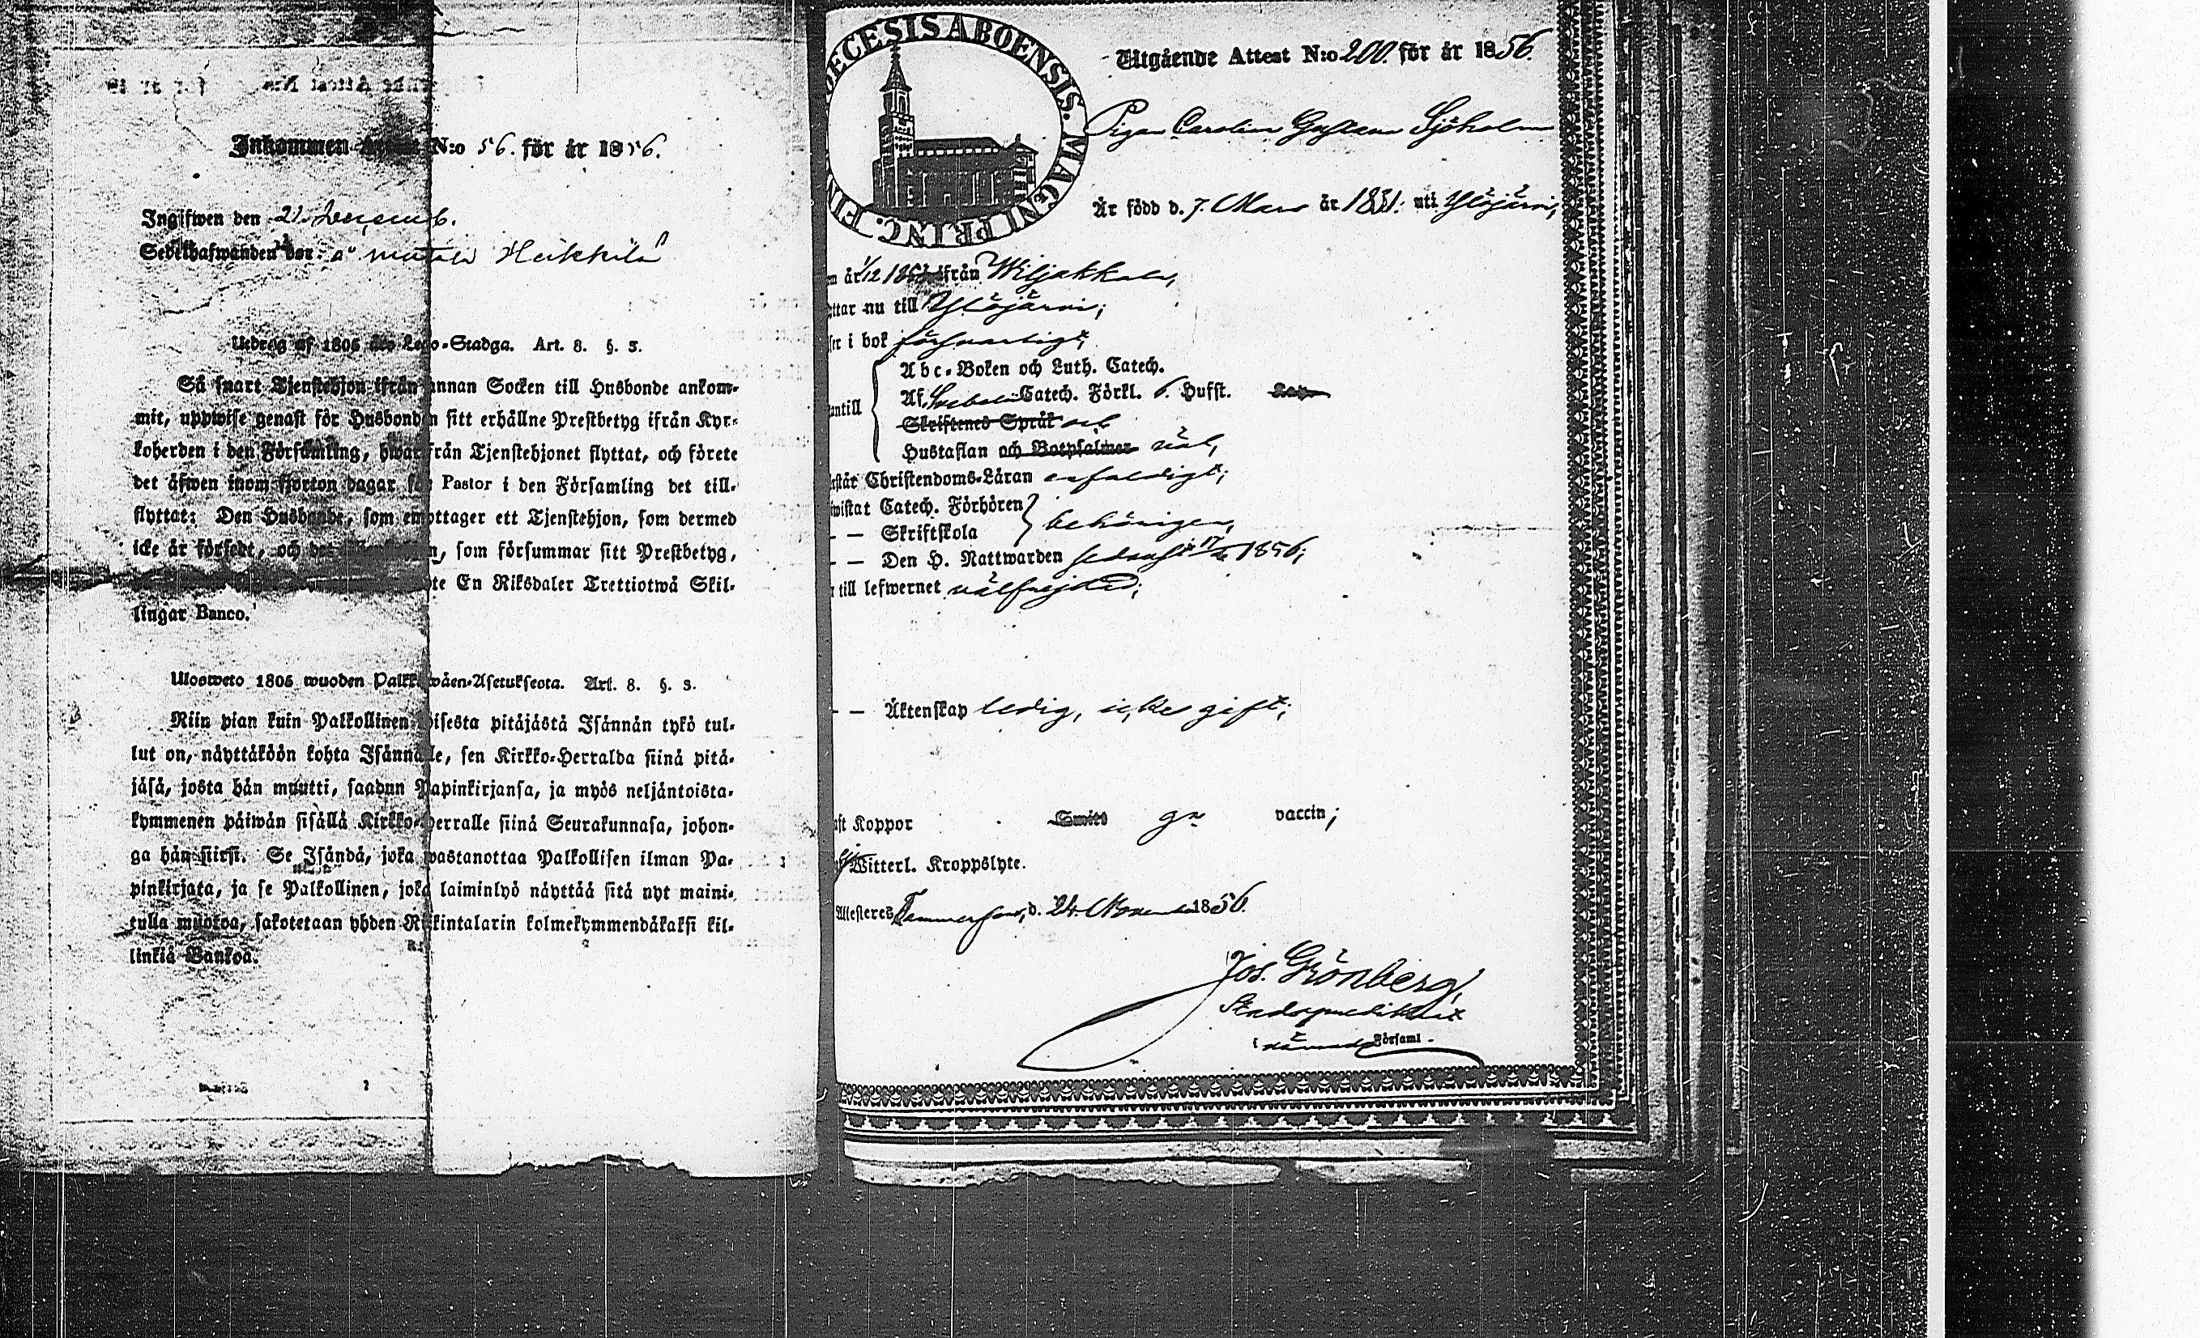 Inkommen Attest N:o 56. för år 1856.
Ingifwen den 21 Decemb.
Sedelhafwanden bor: å Heikkilä
Utdrag af 1805 års Lego-Stadga. Art. 8. §. 3.
Så snart Tjenstehjon ifrån annan Socken till Husbonde ankom-
mit, uppwise genast för Husbonden sitt erhållne Prestbetyg ifrån Kyr-
koherden i den Församling, hwarifrån Tjenstehjonet flyttat, och förete
det äfwen inom fjorton dagar för Pastor i den Församling det till-
flyttat: Den Husbonde, som emottager ett Tjenstehjon, som dermed
icke är försedt, och det, som försummar sitt Prestbetyg,
En Riksdaler Trettiotwå Skil-
lingar Banco.
Ulosweto 1805 wuoden Palkkawäen-Asetuksesta. Art. 8. §. 3.
Niin pian kuin Palkollinen toisesta pitäjästä Isännän tykö tul-
lut on, näyttäköön kohta Isännälle, sen Kirkko-Herralda siinä pitä-
jäsä, josta hän muutti, saadun Papinkirjansa, ja myös neljäntoista-
kymmenen päiwän sisällä Kirkko-Herralle siinä Seurakunnasa, johon-
ga hän siirsi. Se Isändä, joka wastanottaa Palkollisen ilman Pa-
pinkirjata, ja se Palkollinen, joka laiminlyö näyttää sitä nyt maini-
tulla muotoa, sakotetaan yhden Riikintalarin kolmekymmendäkaksi kil-
linkiä Bankoa.
DIECESIS ABOENSIS. MAGNI PRINC. FIN
Utgående Attest N:o 200. för år 1856.
Pigan Carolina Gustava Sjöholm
Är född d. 7. Mars år 1831. uti Ylöjärvi,
år 1/12 ifrån Wiljakkala,
ttar nu till Ylöjärvi;
i bok försvarligt;
Abc-Boken och Luth. Catech.
Af Svebelii Catech. Förkl. 6. Hufst.
Skriftenes Språk och
antill
Hustaflan och Botpsalmer väl,
rstår Christendoms-Läran enfaldigt;
wistat Catech. Förhören
— — Skriftskola
behörigen,
— — Den H. Nattwarden sednast 1856;
till lefwernet välfrejdad;
— — Äktenskap ledig, icke gift;
aft Koppor Smitt gn vaccin;
ej Witterl. Kroppslyte.
Attesteres Tammerfors, d. 24. November 1856.
Jos. Grönberg,
Stadspredikant
i nämnde Församl.